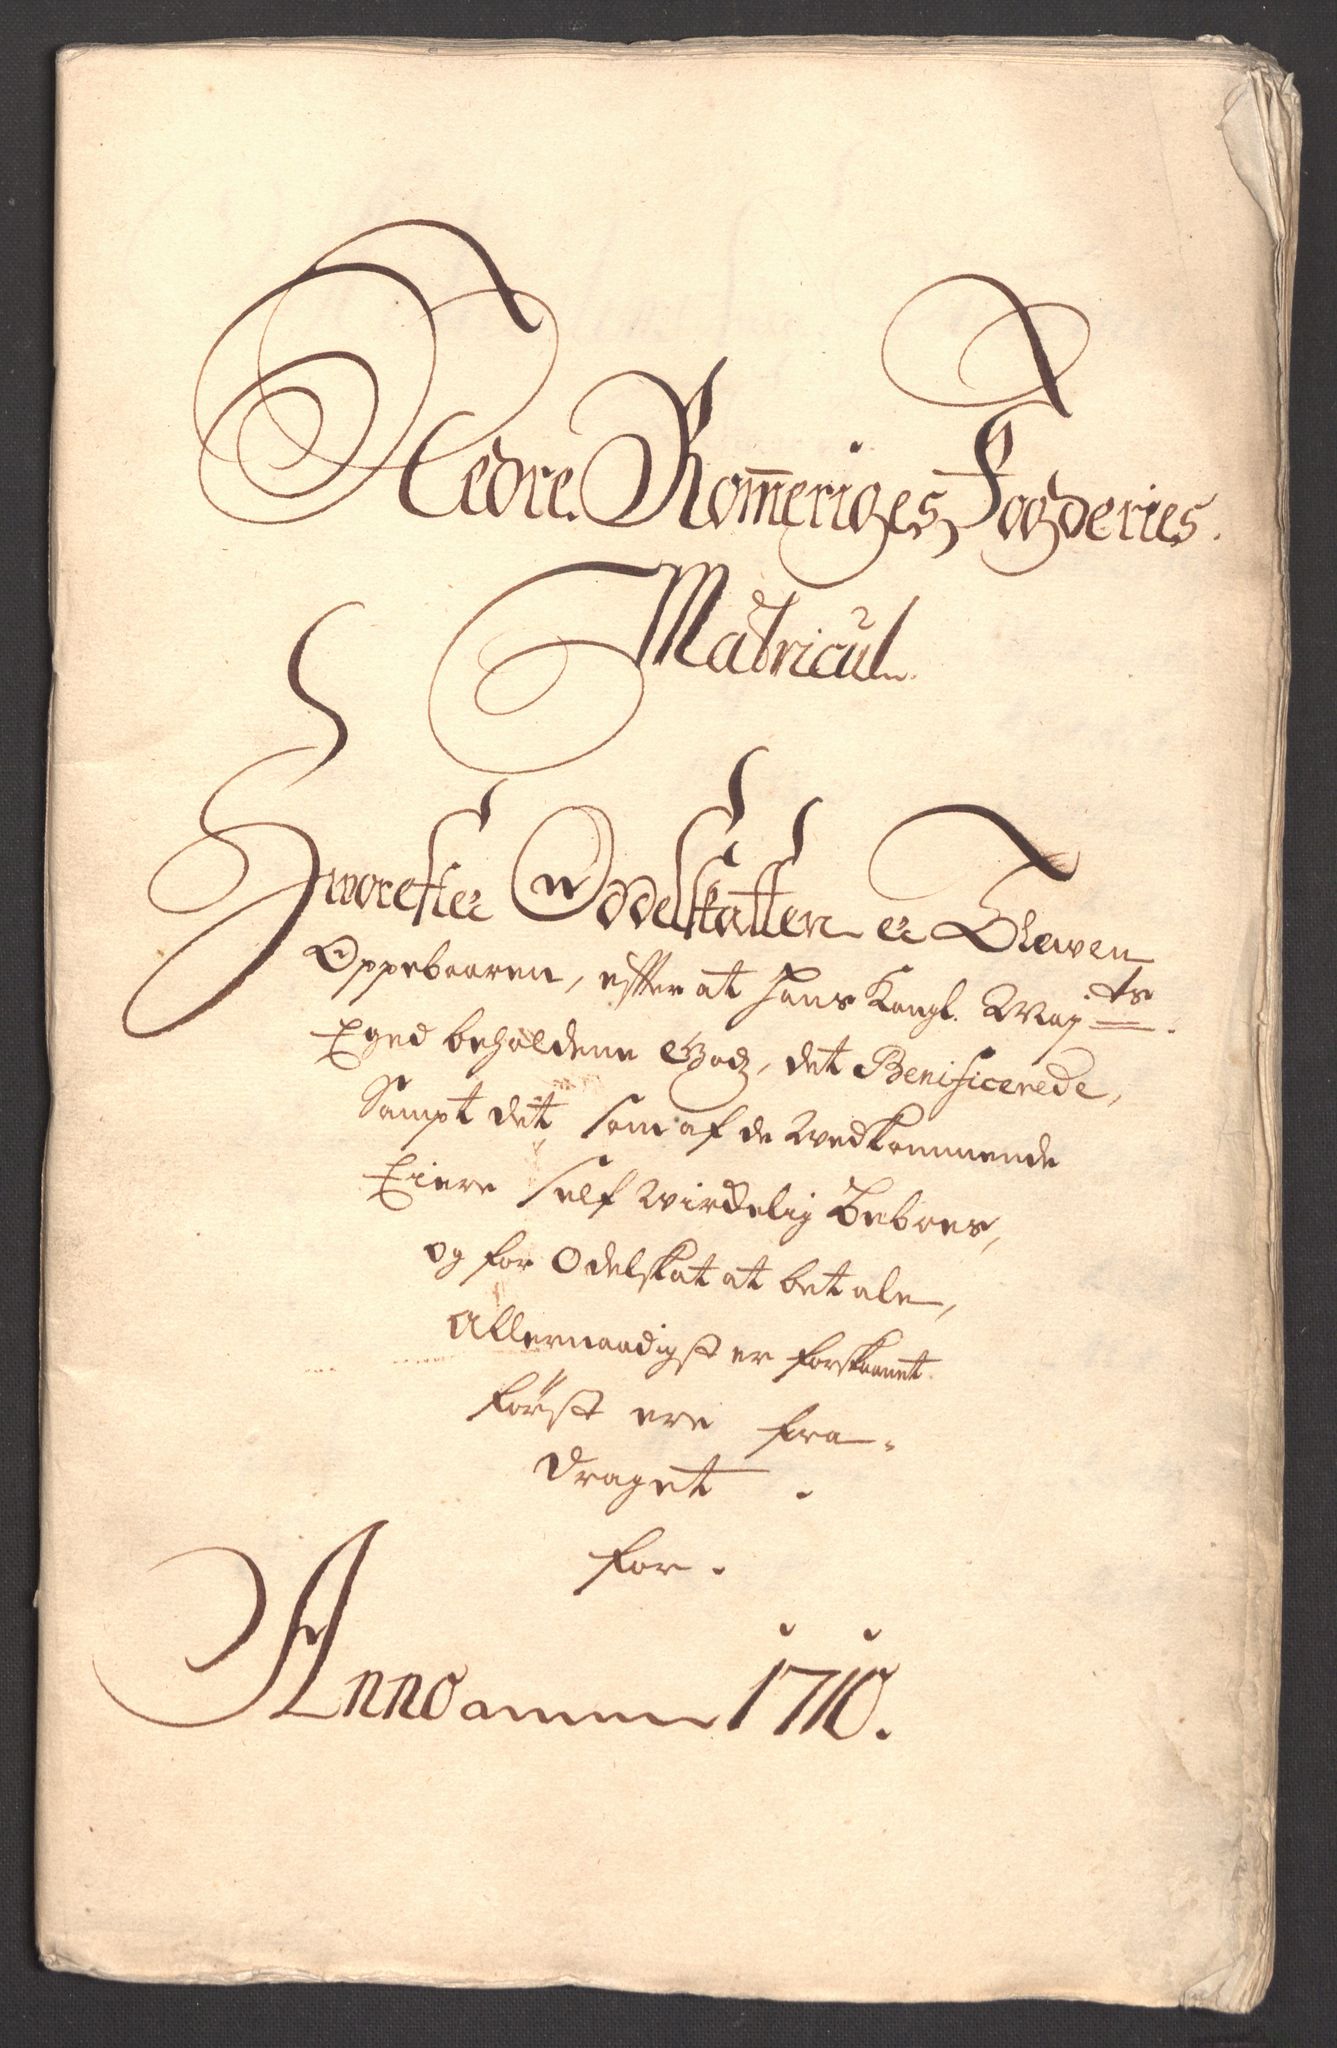 Nedre Rom̅eriges Fogderies.
Matricul.
Hvorefter Oddelskatten er Bleven
Oppebaaren, efter at hans Kongl. May.ts
Eged beholdene Godz, det Benificerede,
Sampt det, som af de Wedkommende
Eiere self Wirckelig Beboes,
og for Odelskat at betale,
Allernaadigst er forskaanet.
først ere fra-
draget.
for.
Anno 1710.